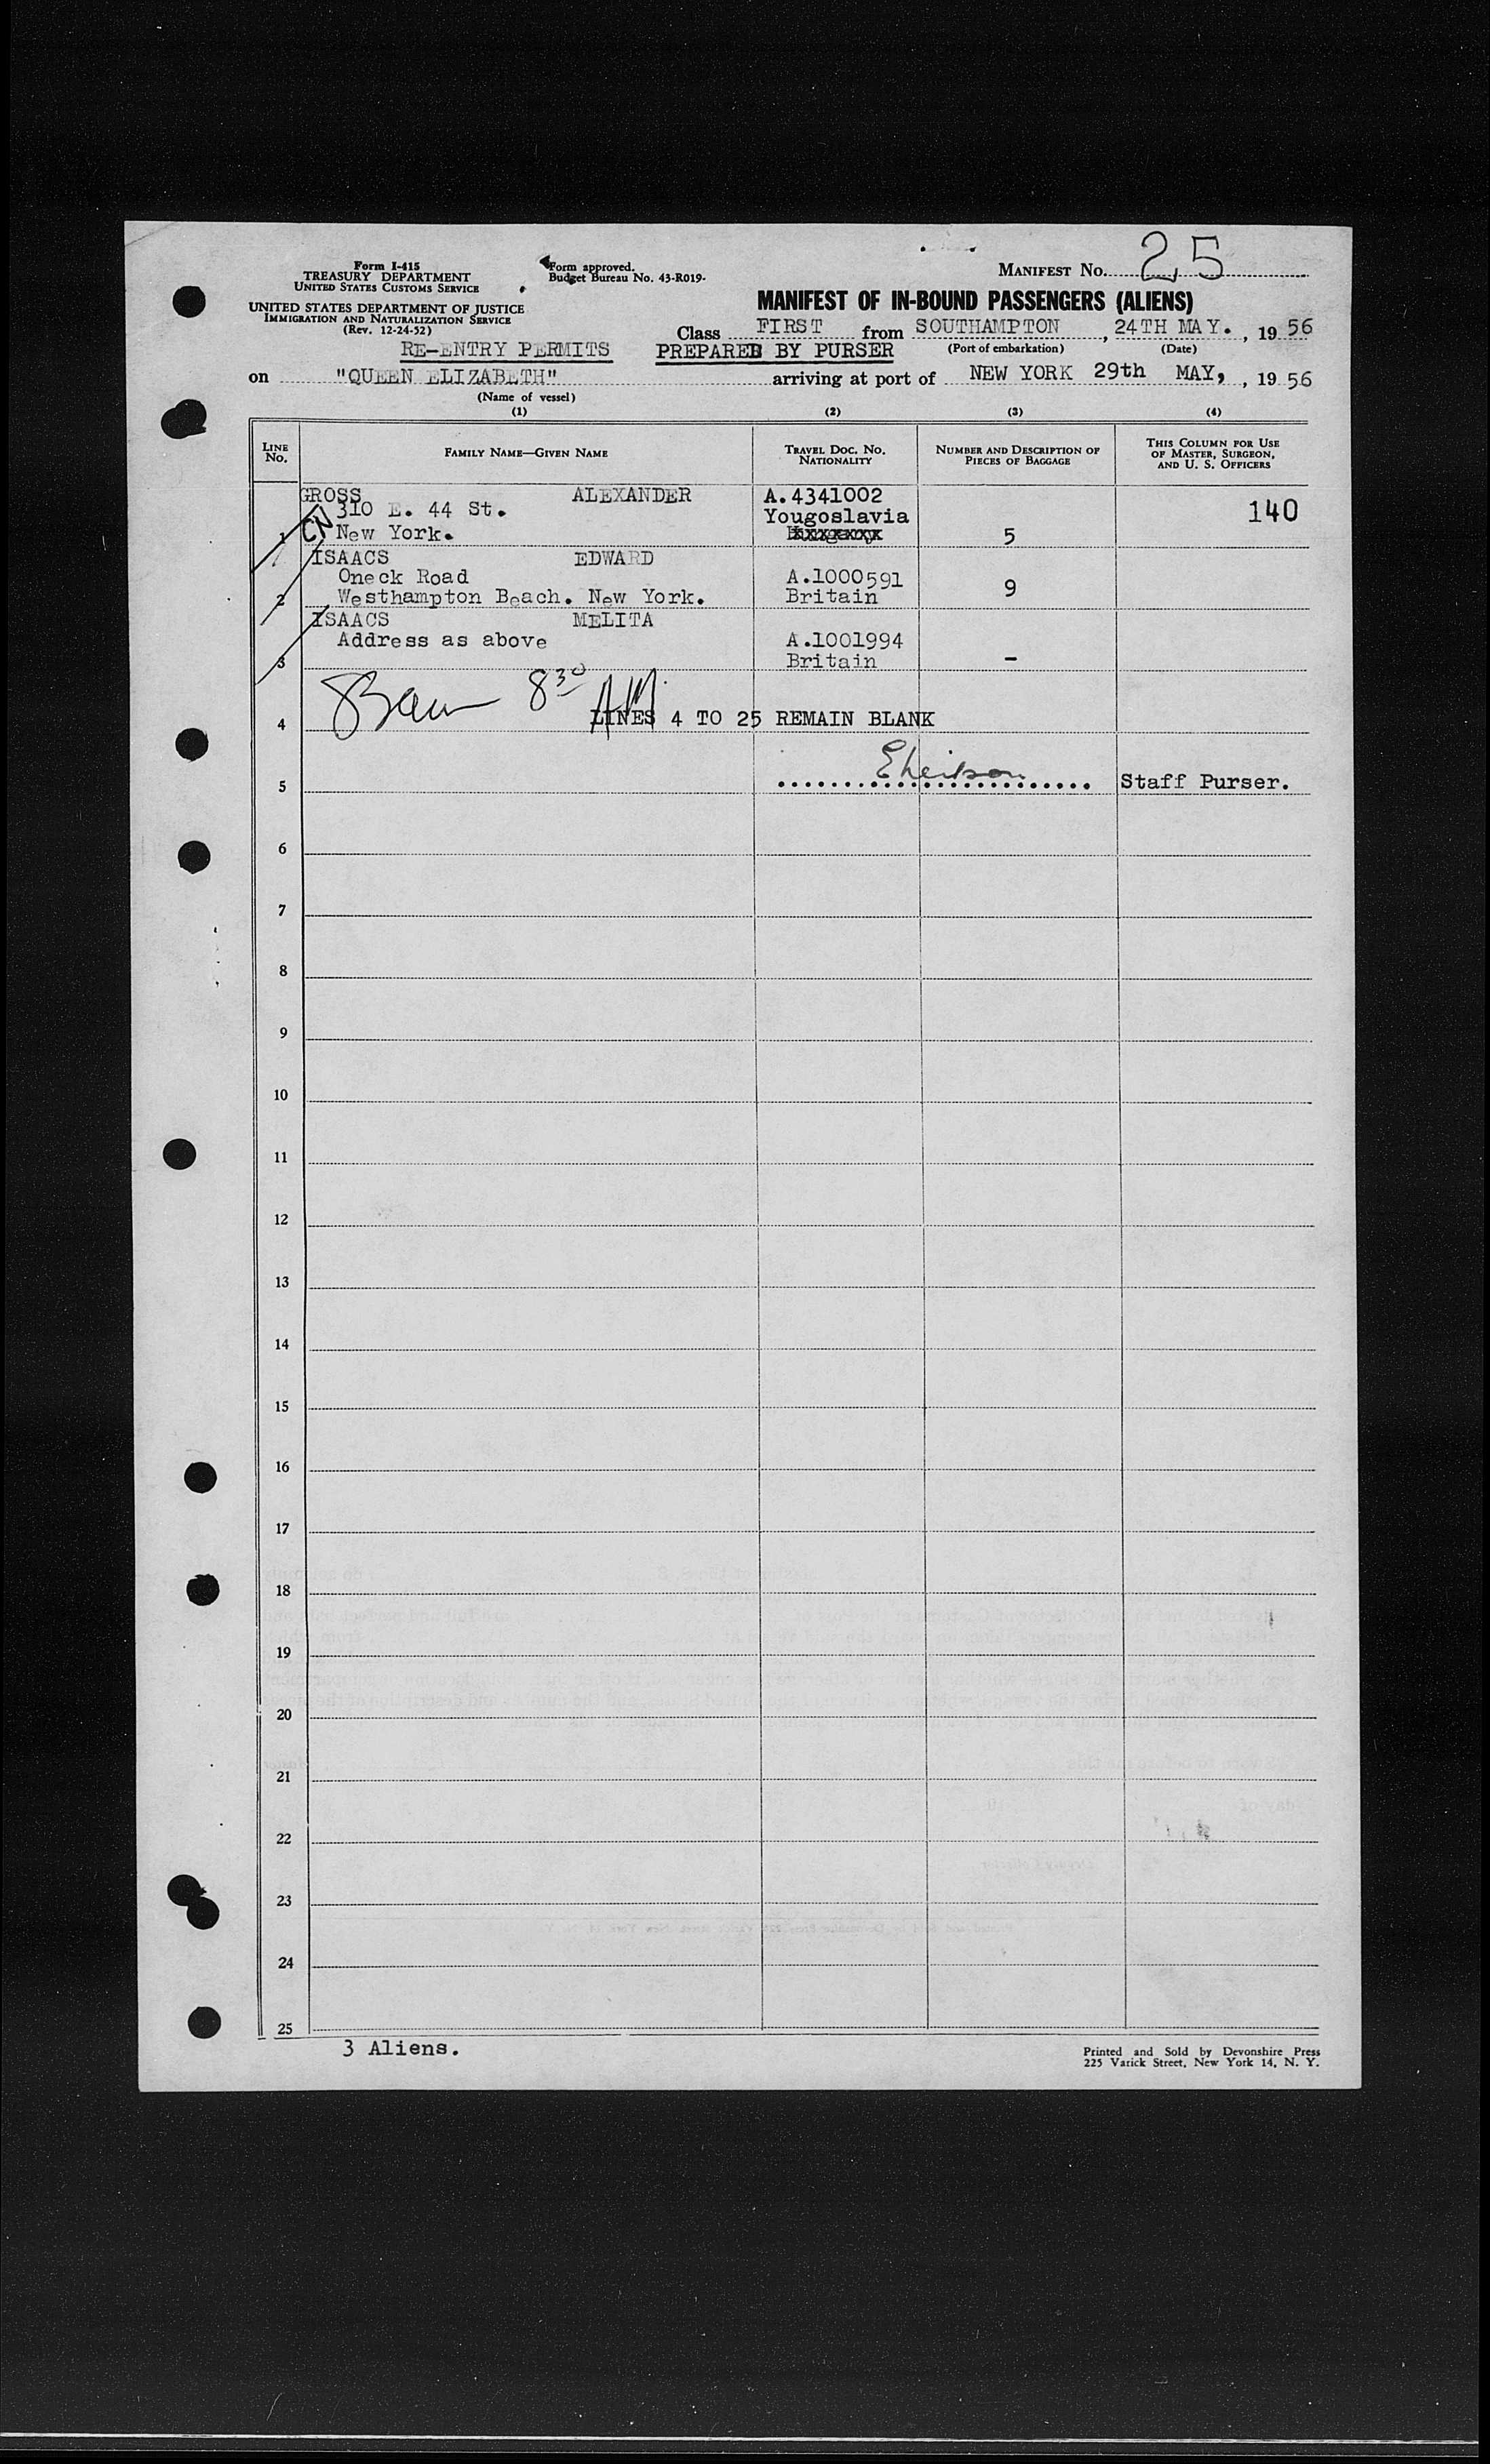 25
MANIFEST No.
Form I-415
TREASURY DEPARTMENT
UNITED STATES CUSTOMS SERVICE
Form approved.
Budget Bureau No. 43-R019.
UNITED STATES DEPARTMENT OF JUSTICE
IMMIGRATION AND NATURALIZATION SERVICE
(Rev. 12-24-52)
MANIFEST OF IN-BOUND PASSENGERS (ALIENS)
Class FIRST from SOUTHAMPTON, 24TH MAY., 1956
RE-ENTRY PERMITS PREPARED BY PURSER (Port of embarkation) (Date)
on "QUEEN ELIZABETH" arriving at port of NEW YORK 29th MAY, , 1956
(Name of vessel)
(1) (2) (3) (4)
LINE No. FAMILY NAME—GIVEN NAME TRAVEL DOC. NO. NATIONALITY NUMBER AND DESCRIPTION OF PIECES OF BAGGAGE THIS COLUMN FOR USE OF MASTER, SURGEON, AND U. S. OFFICERS
GROSS ALEXANDER A.4341002 140
310 E. 44 St. Yougoslavia
1 New York. 5
ISAACS EDWARD
Oneck Road A.1000591
2 Westhampton Beach. New York. Britain 9
ISAACS MELITA
Address as above A.1001994
3 Britain -
8 30 AM
4 LINES 4 TO 25 REMAIN BLANK
5 Staff Purser.
6
7
8
9
10
11
12
13
14
15
16
17
18
19
20
21
22
23
24
25
3 Aliens.
Printed and Sold by Devonshire Press
225 Varick Street, New York 14, N. Y.